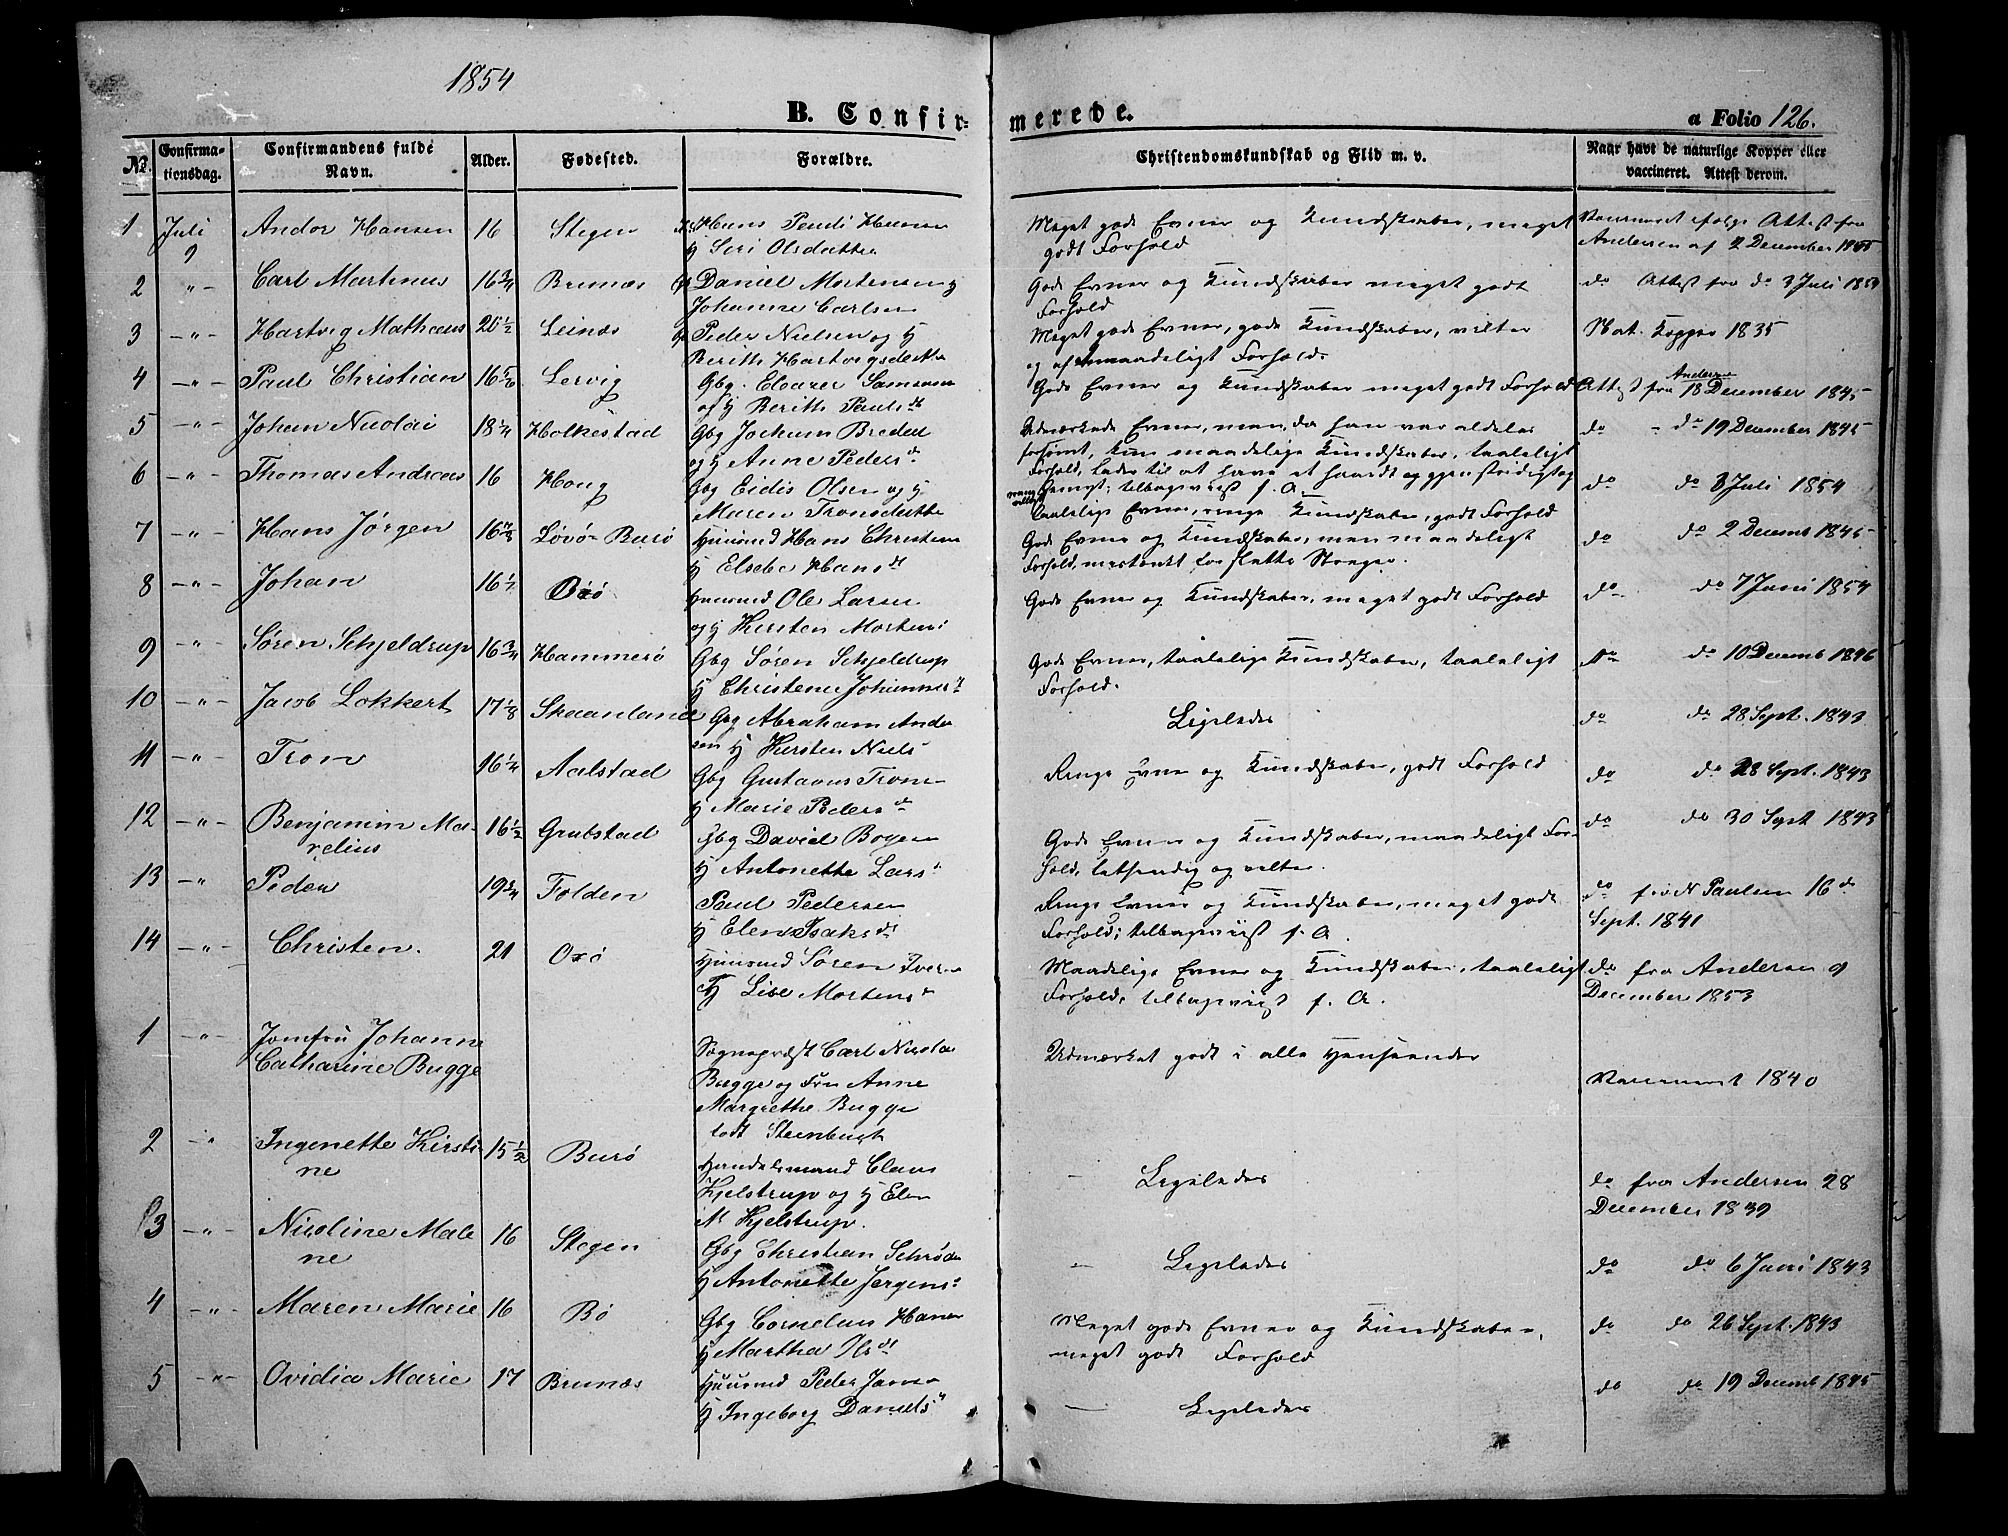 1854
B. Confir-
merede.
a Folio 126.
No.
Confirma-
tionsdag.
Confirmandens fulde
Navn.
Alder.
Fødested.
Forældre.
Christendomskundskab og Flid m. v.
Naar havt de naturlige Kopper eller
vaccineret. Attest derom.
1 Juli 9 Andor Hansen 16 Stegen Hans Hansen
og Siri Olsdatter
Meget gode Evner og Kundskaber, meget
godt Forhold
Vaccineret ifølge Attest fra
Andersen af 2 December
2 -"- Carl Martinus 16 3/4 Brunæs Daniel Mortensen og
Johanne Carlsen
Gode Evner og Kundskaber meget godt
Forhold
do Attest fra do 3 Juli
3 -"- Hartvig Mathæus 20 1/2 Leinæs Peder Nielsen og H
Berith Hartvigsdatter
Meget gode Evner, gode Kundskaber, vilter
og Forhold.
Nat. Kopper 1835
4 -"- Paul Christian 16 5/6 Lervig Gbg. Eleazer Samsonsen
og H Berith Paulsdt
Gode Evner og Kundskaber meget godt Forhold
Attest fra Andersen 18 December 1845
5 -"- Johan Nicolai 18 1/4 Holkestad Gbg Jochum Bredal
og H Anne Pedersd.
Udmærkede Evner, men, da han var aldeles
forsømt, kun maadelige Kundskaber, taaleligt
Forhold, lader til at have et haardt og gjenstridigt
do - do 19 December 1845
6 -"- Thomas Andreas 16 Houg Gbg Eidis Olsen og H
Maren Tronsdatter
taalelige Evner, ringe Kundskaber, godt Forhold
do do 3 Juli 1854
7 -"- Hans Jørgen Løvø-Burø Huusmd Hans Christensen
H Elsebe Hansdt
Gode Evner og Kundskaber, men maadeligt
Forhold,
do do 2 Decemb 1845
8 -"- Johan 16 1/2 Oxø Huusmd Ole Larsen
og H Kirsten Mortens
Gode Evner og Kundskaber, meget godt Forhold
do do 7 Juni 1854
9 -"- Søren Schjeldrup 16 3/4 Hammerø Gbg Søren Schjeldrup
H Christence Johannesd
Gode Evner, taalelige Kundskaber, taaleligt
Forhold.
do do 10 Decemb 1846
10 -"- Jacob Lokkert 17 1/8 Skaanland Gbg Abraham Ander
sen H Kirsten Niels
Ligeledes
do do 28 Sept. 1843
11 -"- Tron 16 1/4 Aalstad Gbg Gustavus Trons
H Marie Pedersd
Ringe Evner og Kundskaber, godt Forhold
do do 28 Sept. 1843
12 -"- Benjamin Ma-
relius 16 1/2 Grubstad Gbg David Bogen
H Antonette Larsd
Gode Evner og Kundskaber, maadeligt For-
hold, letsindig og vilter.
do do 30 Sept 1843
13 -"- Peder 19 3/4 Folden Paul Pedersen
H Elen Isaksdt
Ringe Evner og Kundskaber, meget godt
Forhold; tilbageviist f. A.
do fra N Paulsen 16 de
Sept. 1841
14 -"- Christen. 21 Oxø Huusmd Søren Ivers
H Lise Mortensd
Maadelige Evner og Kundskaber, taaleligt
Forhold, tilbageviist f. A.
do fra Andersen 9
December 1853
1 -"- Jomfru Johanne
Catharine Bugge
Sognepræst Carl Nicolai
Bugge og Fru Anne
Margrethe Bugge
født Steenbugh
Udmærket godt i alle Henseender
Vaccineret 1840
2 -"- Ingenette Kirsti-
ne 15 1/2 Burø Handelsmand Claus
Kjelstrup og H Elen
M. Kjelstrup.
- Ligeledes
do fra Andersen 28
December 1839
3 -"- Nicoline Male
ne 16 Stegen Gbg Christian Schrøder
H Antonette Jørgens
- Ligeledes
do do 6 Juni 1843
4 -"- Maren Marie 16 Bø Gbg Cornelius Hansen
H Martha Olsdt
Meget gode Evner og Kundskaber,
meget godt Forhold
do do 26 Sept. 1843
5 -"- Ovidia Marie 17 Brunæs Huusmd Peder Jans
H Ingeborg Danielsd
- Ligeledes
do do 19 Decemb 1845